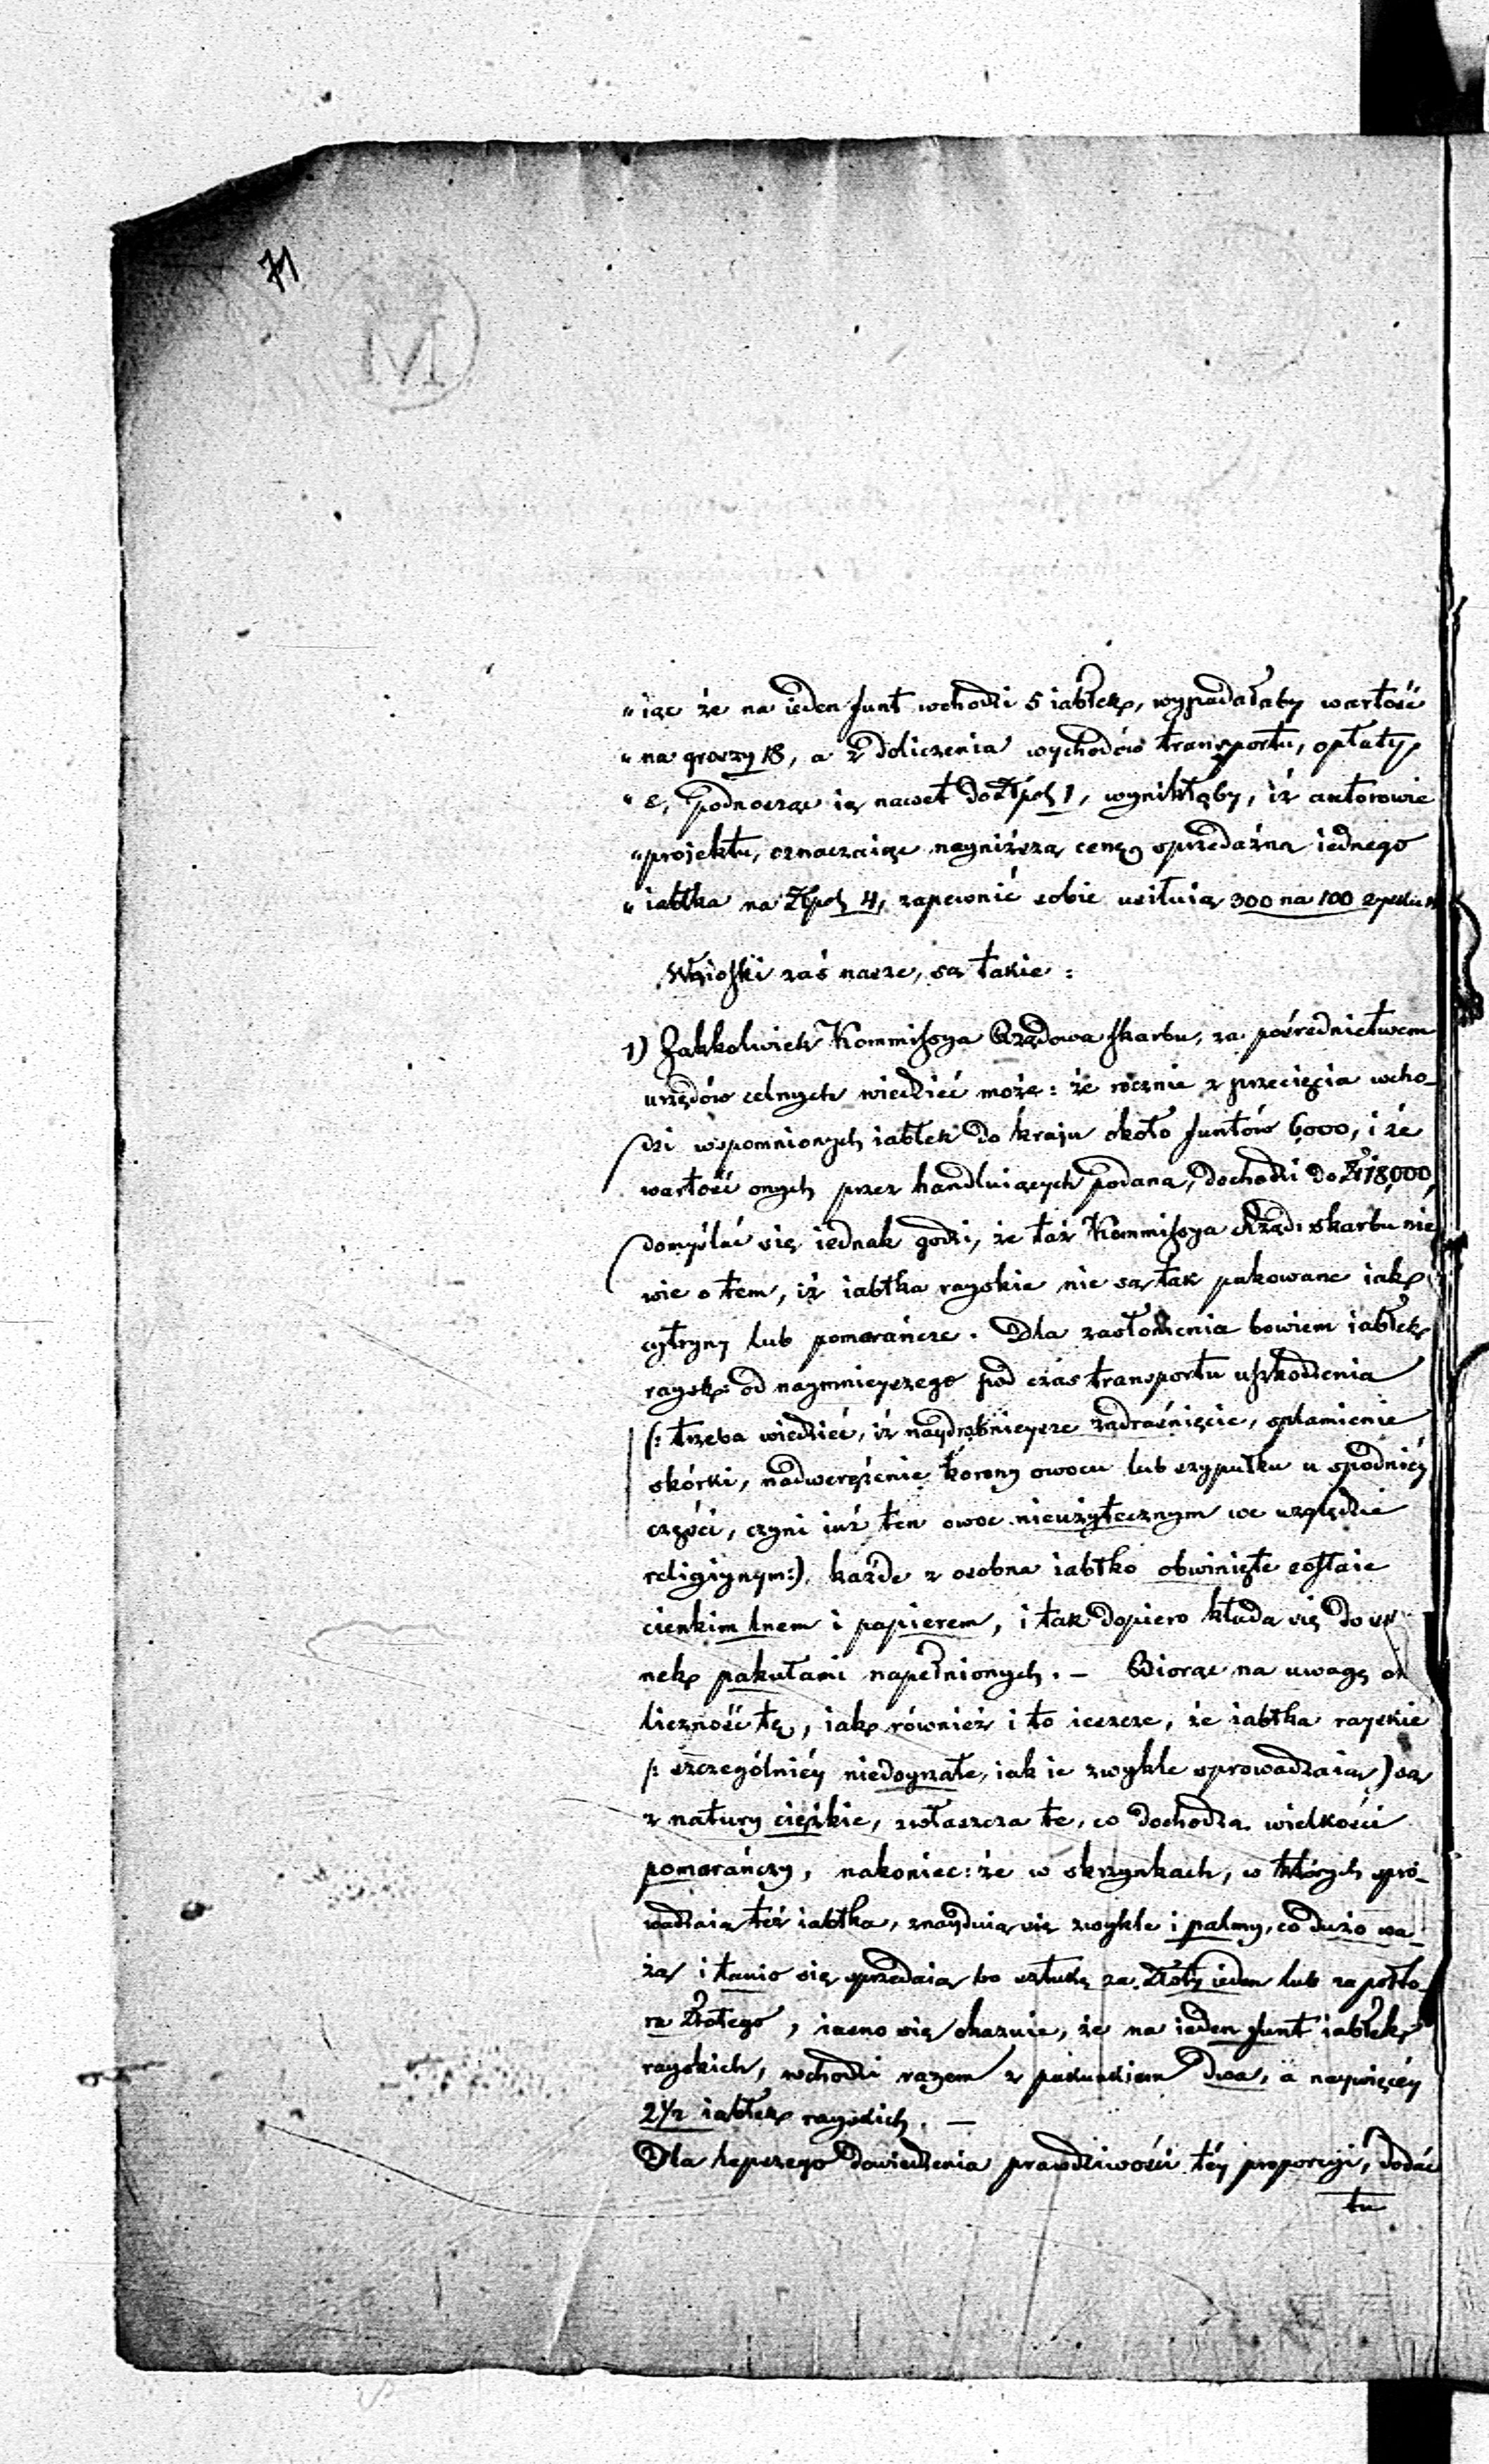 71
M
„iąc że na ieden funt wchodzi 5 iabłek, wypadałaby wartość
„na groszy 18, a z doliczenia wychodów transportu, opłaty
„c, podnosząc ią nawet do Złpol 1, wynikłoby, iż autorowie
„projektu, oznaczaiąc nayniższą cenę sprzedażną iednego
„iabłka na Złpol 4, zapewnić sobie usiłuią 300 na 100
Wnioski zaś nasze, są takie:
1) Jakkolwiek Kommissya Rządowa skarbu, za pośrednictwem
urzędów celnych wiedzieć może: że rocznie z przecięcia wcho-
dzi wspomnionych iabłek do kraju około funtów 6000, i że
wartość onych przez handluiących podana, dochodzi do Zł 18,000,
domyślać się iednak godzi, że taż Kommissya Rząd: skarbu nie
wie o tem, iż iabłka rayskie nie są tak pakowane iak
cytryny lub pomarańcze. Dla zasłonienia bowiem iabłek
raysk: od naymnieyszego pod czas transportu uszkodzenia
/: trzeba wiedzieć, iż naydrobnieysze zadraśnięcie, splamienie
skórki, nadwerężenie korony owocu lub szypułku u spodniéy
części, czyni iuż ten owoc nieużytecznym we względzie
religiynym:/, każde z osobna iabłko obwinięte zostaie
cienkim lnem i papierem, i tak dopiero kłada się do
nek pakułami napełnionych. – Biorąc na uwagę ok
liczność tę, iak również i to ieszcze, że iabłka rayskie
/: szczególniéy niedoyrzałe, iak ie zwykle sprowadzaią) są
z natury ciężkie, zwłaszcza te, co dochodzą wielkości
pomarańczy, nakoniec: że w skrzynkach, w których spro-
wadzaią też iabłka, znayduią się zwykle i palmy, co dużo wa-
żą i tanio się sprzedaią bo sztukę za Złoty ieden lub za połto-
ra Złotego, iasno się okazuie, że na ieden funt iabłek
rayskich, wchodzi razem z pakunkiem dwa, a naywięcéy
2½ iabłek rayskich. —
Dla lepszego dowiedzenia prawdziwości téy proporcyi, dodać
tu